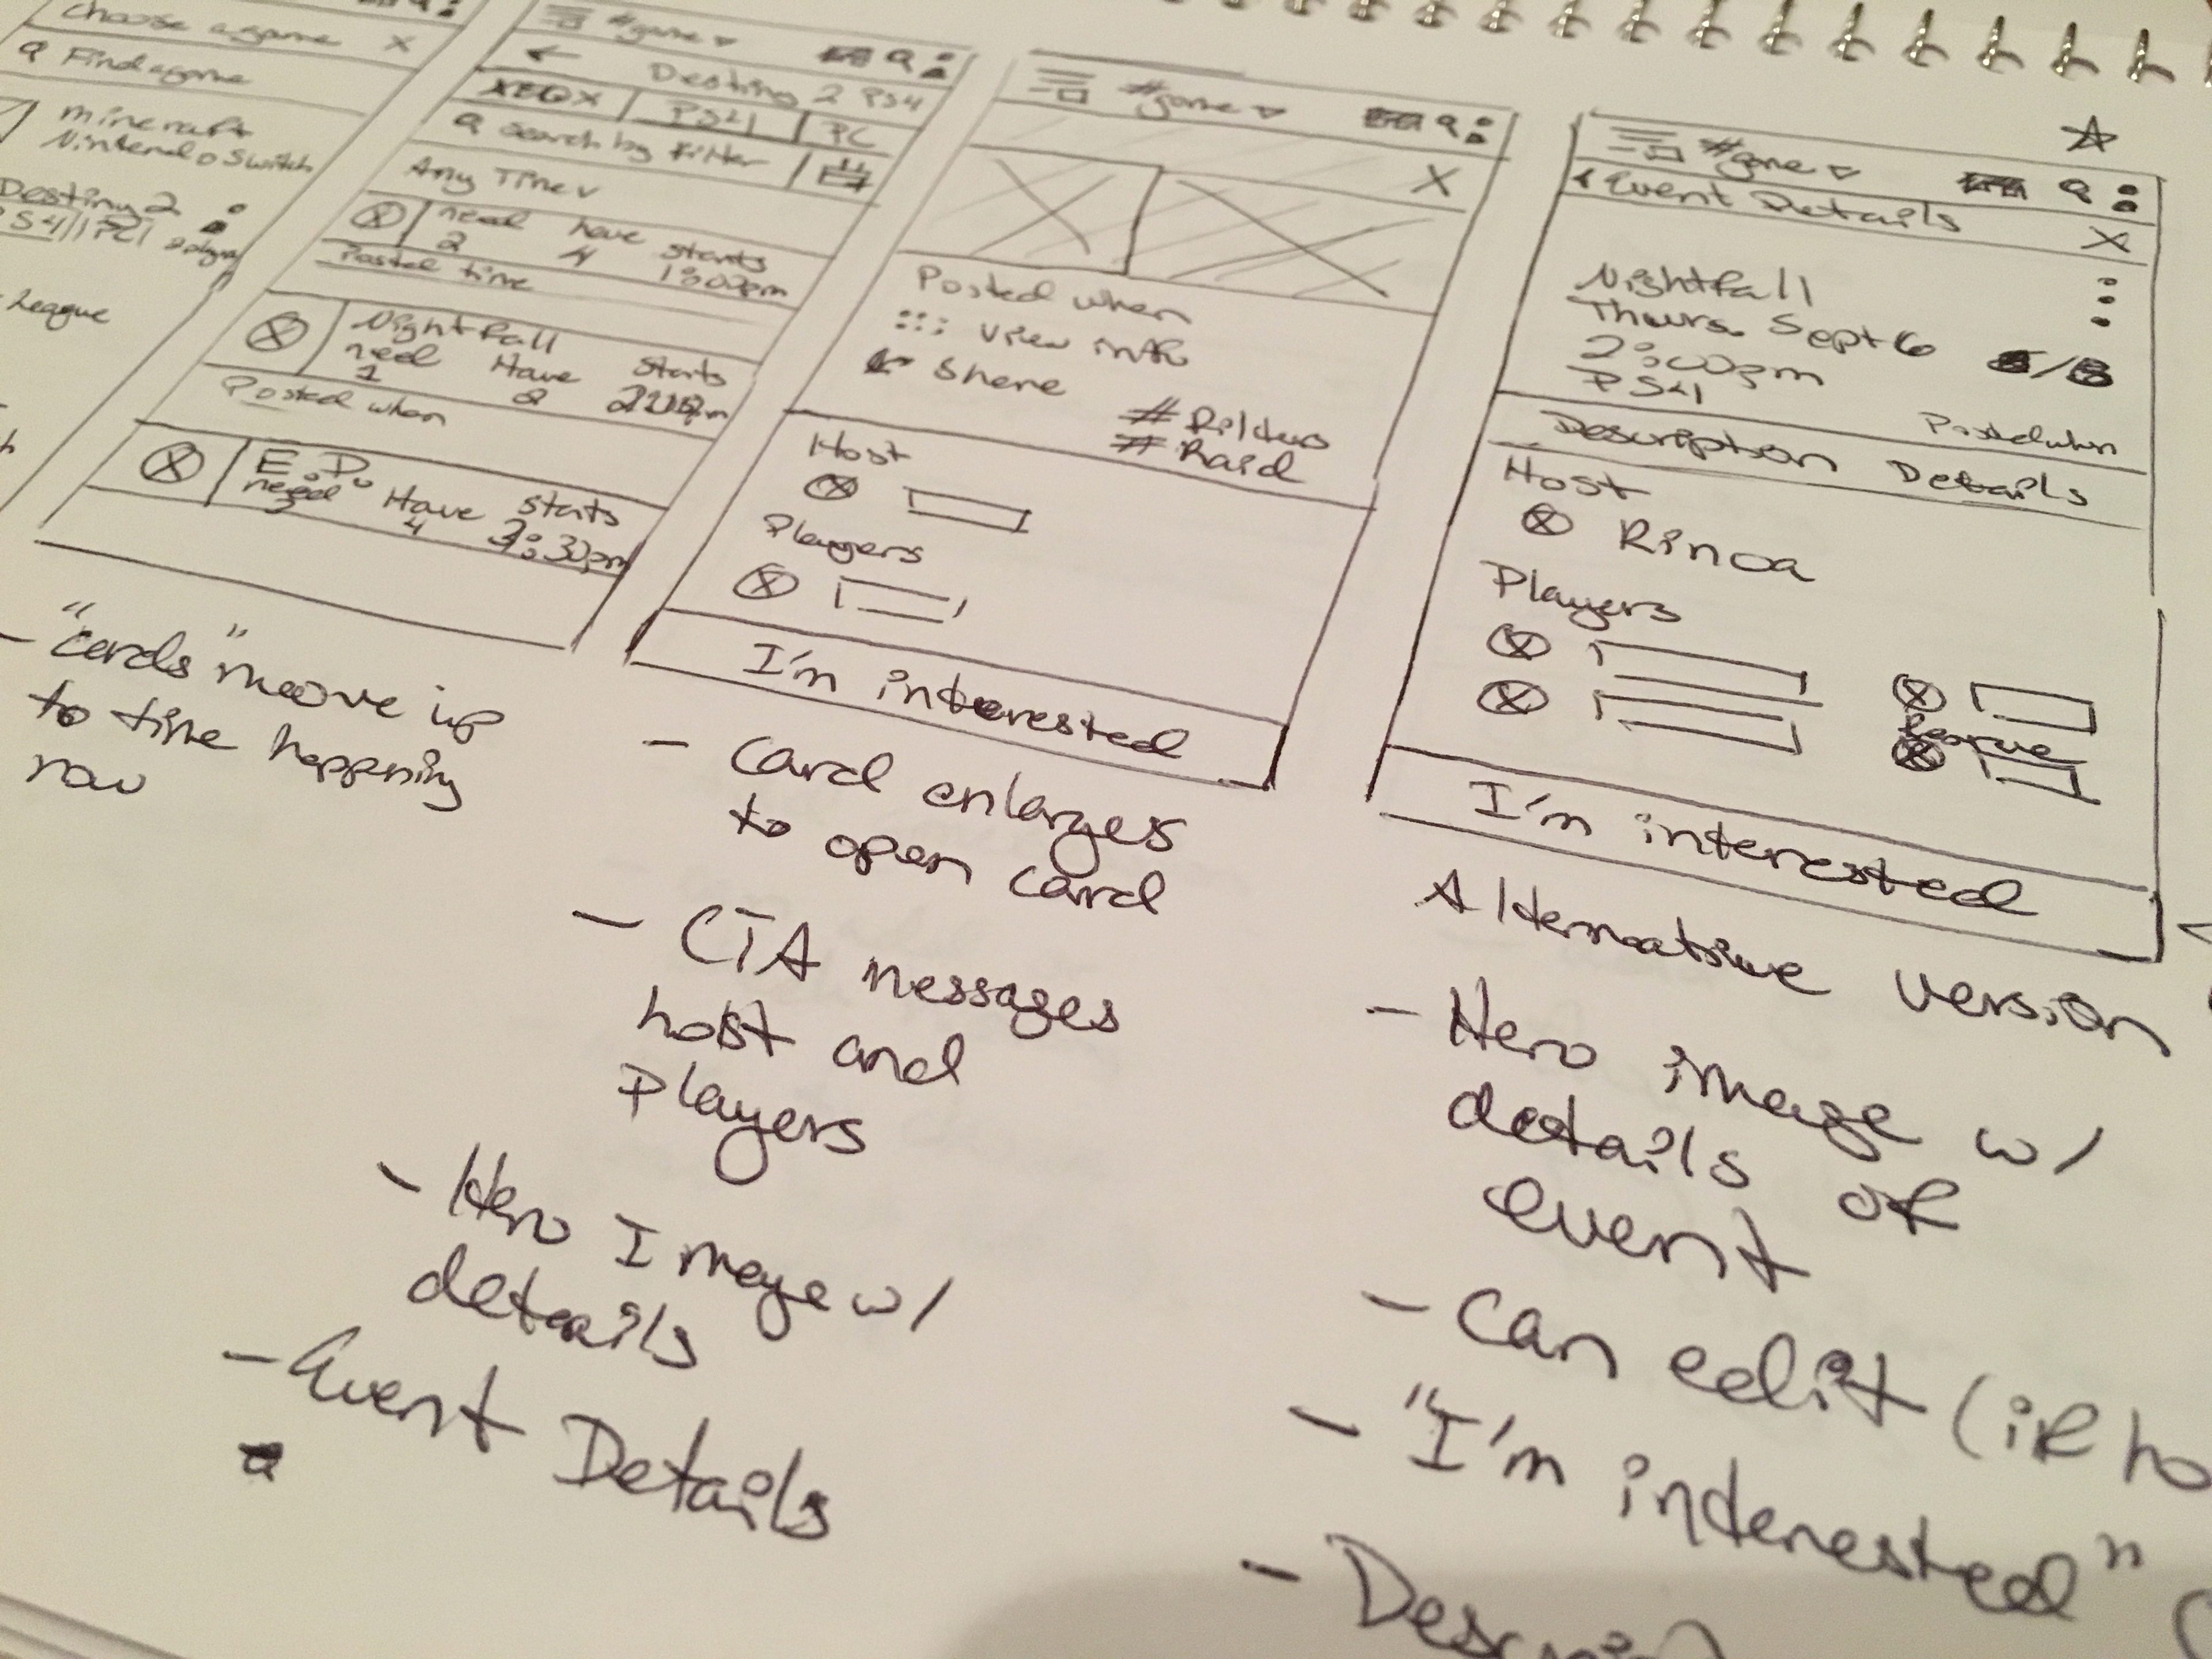 Choose a game X
Find a game
minecraft
Nintendo Switch
Destiny 2
PS4/PC
League
#game
Destiny 2 PS4
XBOX PS4 PC
Search by filter
Any Time
need have starts
2 4 1:00pm
Posted time
Nightfall
need Have Starts
1 2
Posted when
E.D.
need Have Starts
3 4 3:30pm
- "Cards" moove up
to time happening
now
#game
X
Posted when
view info
Share
#Filters
#Raid
Host
Players
I'm interested
- Card enlarges
to open card
- CTA messages
host and
Players
- Hero Image w/
details
- Event Details
#game
Event Details
X
Nightfall
Thurs. Sept 6
2:00pm
PS4
Posted when
Description Details
Host
Rinoa
Players
I'm interested
Alternative version
- Hero image w/
details of
event
- Can edit (if ho
- "I'm interested"